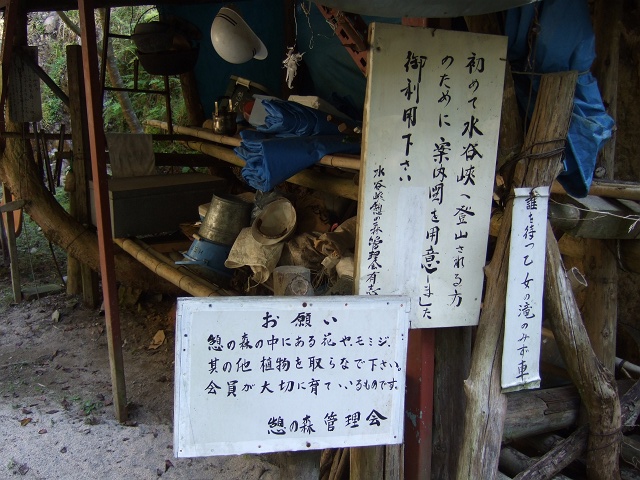 初めて水谷峡へ登山される方
のために案内図を用意しました
御利用下さい
水谷峡憩の森管理会有志
誰を待つ乙女の滝のみず車
お願い
憩の森の中にある花や、モミジ、
其の他植物を取らないで下さい。
会員が大切に育ているものです。
憩の森管理会